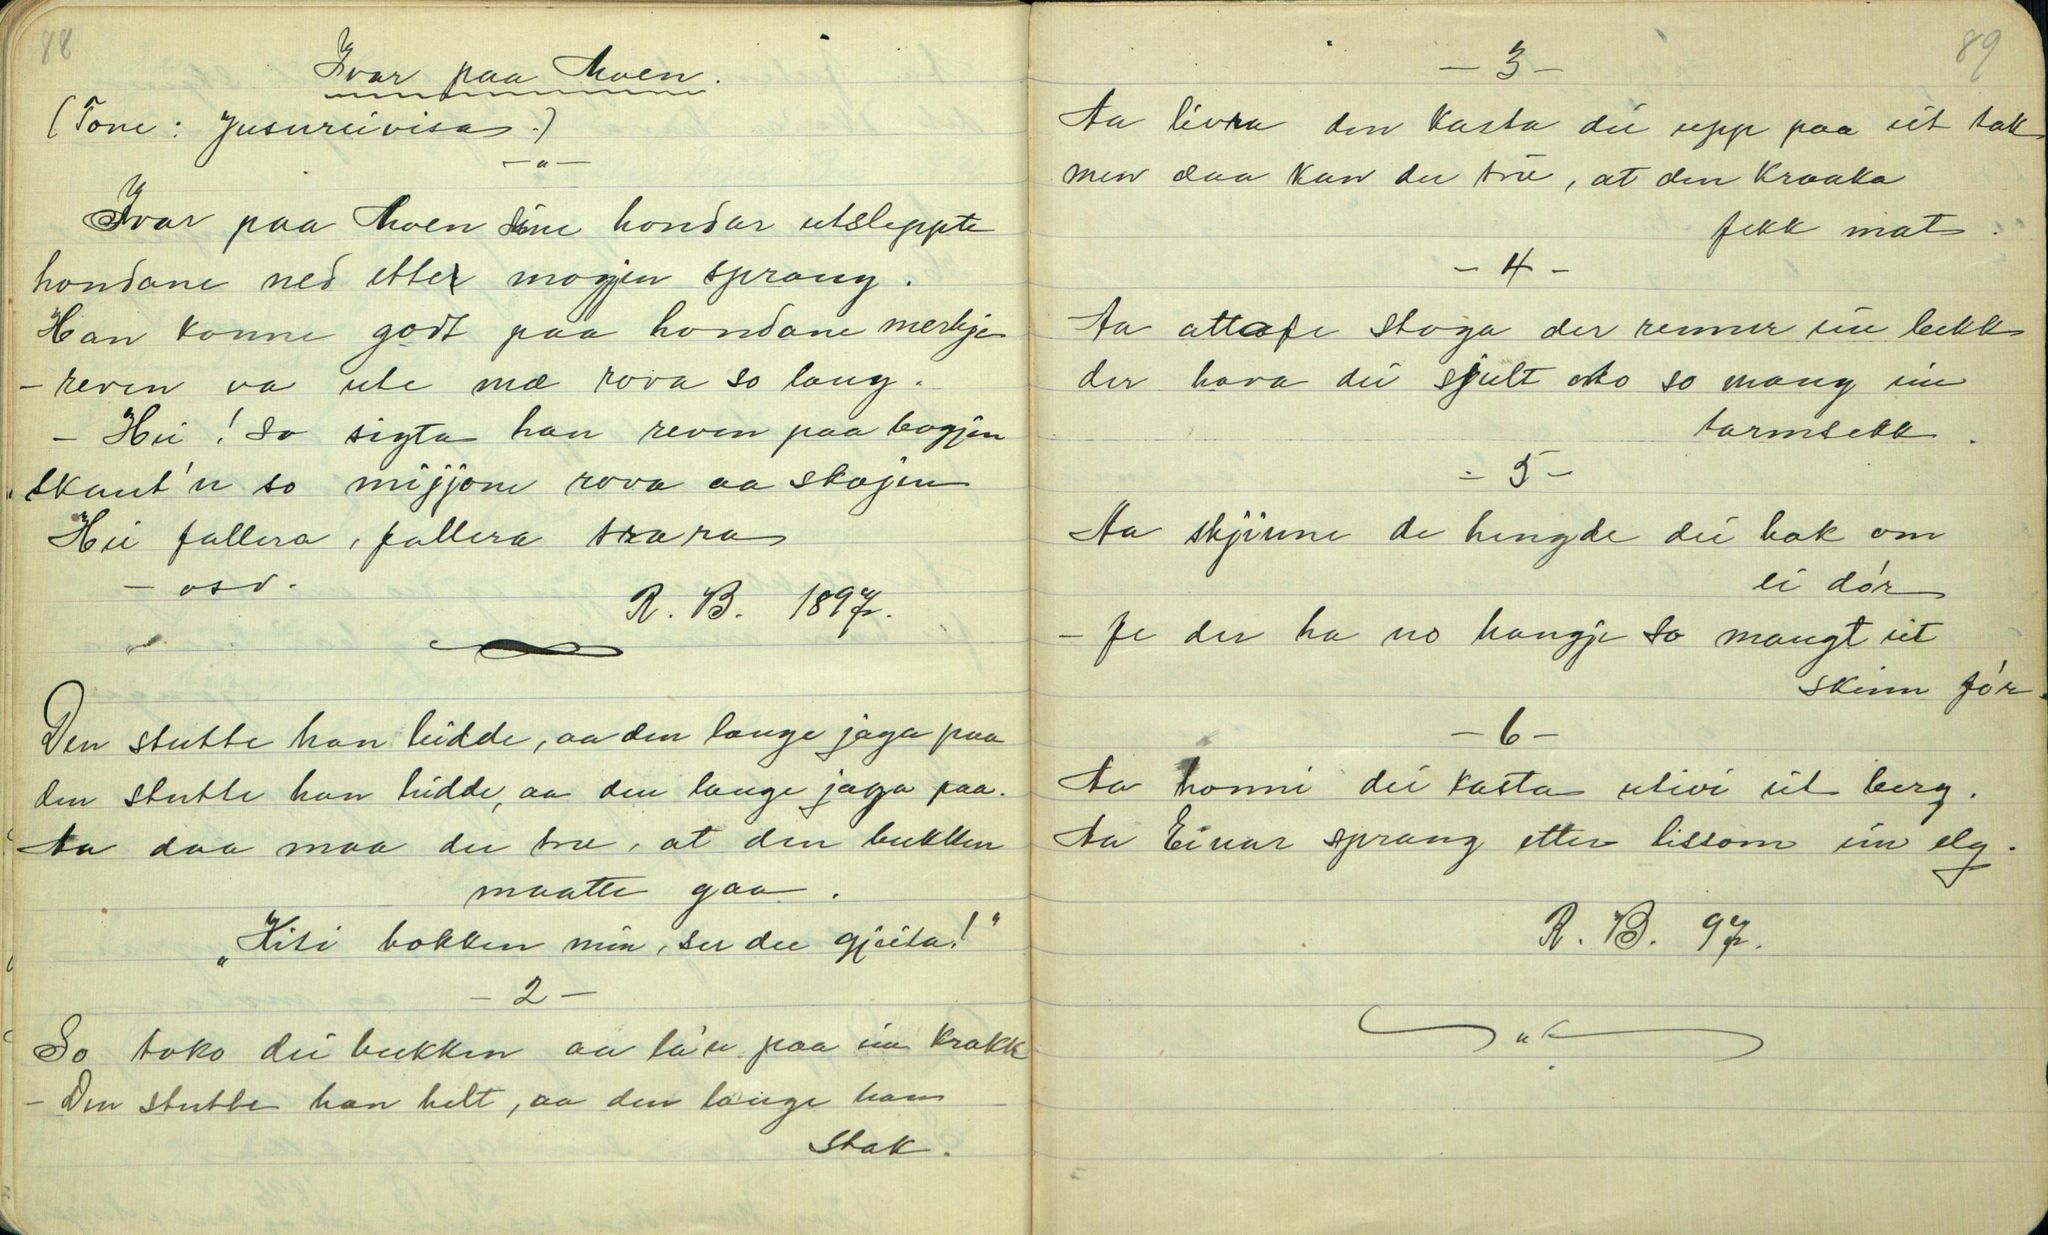 88
Ivar paa Moen.
(Tone: Jusureivisa.)
Ivar paa Moen sine hondar utsleppte
hondane ned etter mogjen sprang.
Han konne godt paa hondane merkje
- reven va ute mæ rova so lang.
- Hei! So sigta han reven paa bogjen
skaut'n so mijjone rova aa skojen
Hei fallera, fallera trara
- osv.
R. B. 1897.
Den stutte han leidde, aa den lange jaga paa
den stutte han leidde, aa den lange jaga paa.
Aa daa maa du tru, at den bukken
maatte gaa.
"Kisi bokken min, ser du gjeita!"
- 2 -
So toko dei bukken aa la'n paa ein krakk
- Den stutte han helt, aa den lange han
stak.
89
- 3 -
Aa livra den kasta dei upp paa eit tak
men daa kan du tru, at den kraaka
fekk mat.
- 4 -
Aa attafe stoga der renner ein bekk
der hava dei sjult oko so mang ein
tarmsekk.
- 5 -
Aa skjinne de hengde dei bak om
ei dór
- fe der ha no hangje so mangt eit
skinn fór.
- 6 -
Aa honni dei kasta utivi eit berg.
Aa Einar sprang etter lissom ein elg.
R. B. 97.